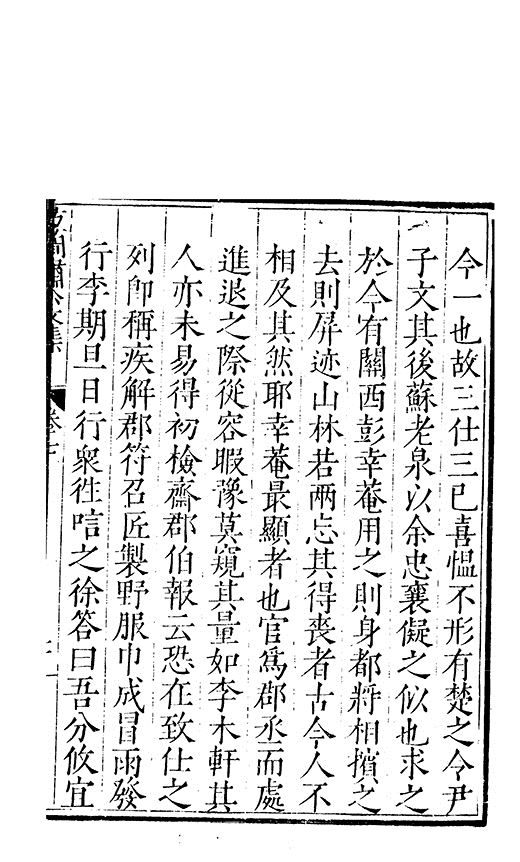 今一也故三仕三已喜慍不形有楚之令尹
子文其後蘇老泉以余忠襄儗之似也求之
於今有關西彭幸菴用之則身都將相擯之
去則屏迹山林若兩忘其得喪者古今人不
相及其然耶幸菴最顯者也官爲郡丞而處
進退之際從容暇豫莫窺其量如李木軒其
人亦未易得初檢齋郡伯報云恐在致仕之
列卽稱疾解郡符召匠製野服巾成冒雨發
行李期旦日行衆徃唁之徐答曰吾分攸宜
文集
卷十